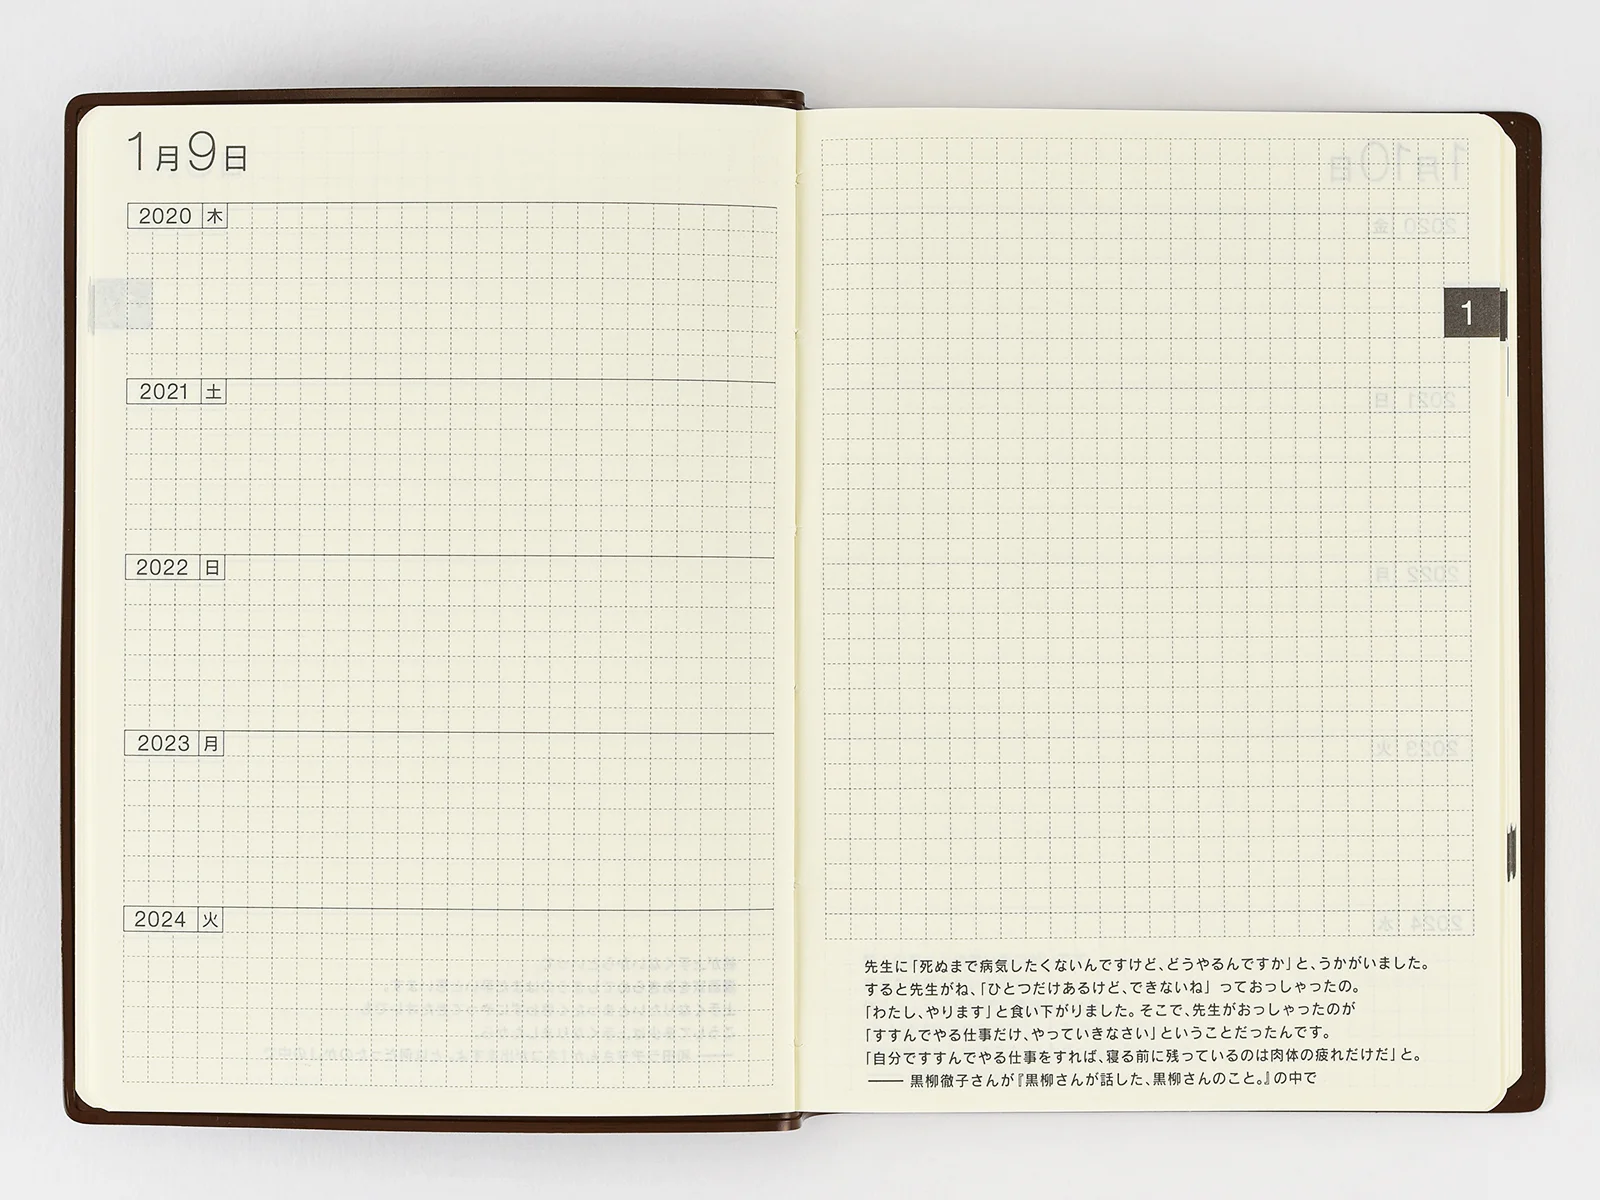 1月9日
2020 木
2021 土
2022 日
2023 月
2024 火
1月10日
2020 金
1
2021 日
2022 月
2023 火
2024 水
先生に「死ぬまで病気したくないんですけど、どうやるんですか」と、うかがいました。
すると先生がね、「ひとつだけあるけど、できないね」っておっしゃったの。
「わたし、やります」と食い下がりました。そこで、先生がおっしゃったのが
「すすんでやる仕事だけ、やっていきなさい」ということだったんです。
「自分ですすんでやる仕事をすれば、寝る前に残っているのは肉体の疲れだけだ」と。
── 黒柳徹子さんが『黒柳さんが話した、黒柳さんのこと。』の中で